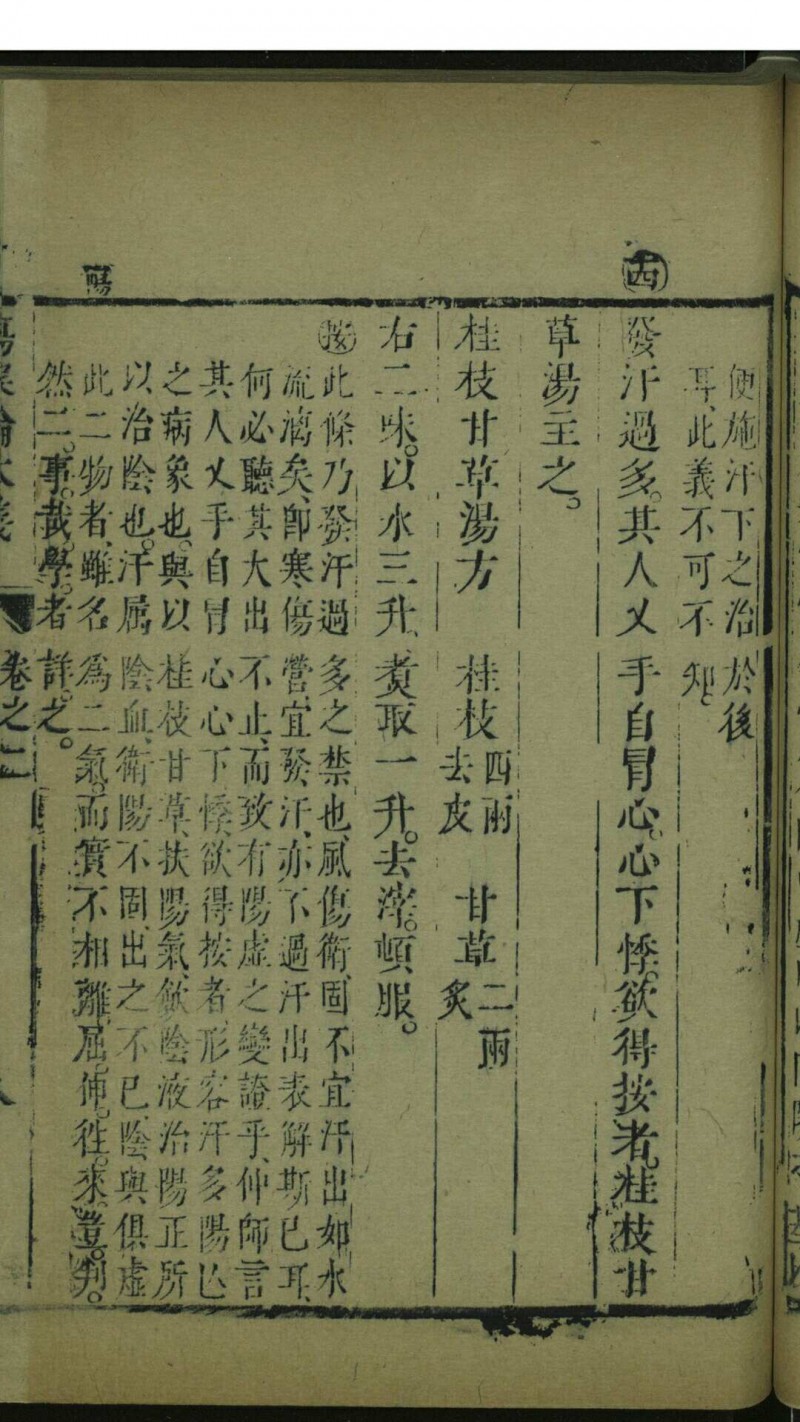 便施汗下之治於後
耳、此義不可不知。
西
發汗過多。其人叉手自冒心。心下悸。欲得按者。桂枝甘
草湯主之。
桂枝甘草湯方 桂枝四兩去皮 甘草二兩炙
右二味。以水三升、煑取一升。去滓。頓服。
按此條乃發汗過多之禁也、風傷衛、固不宜汗出如水
流漓矣、卽寒傷營、宜發汗、亦不過汗出表解斯已耳、
何必聽其大出不止、而致有陽虛之變證乎、仲師言
其人叉手自冒心心下悸、欲得按者、形容汗多陽亡
之病象也、與以桂枝甘草、扶陽氣、斂陰液治陽正所
以治陰也。汗屬陰血、衛陽不固、出之不已、陰與俱虛
此二物者、雖名爲二氣。而實不相離、屈。伸。徃。來。豈。判。
然二。事。哉。學。者詳。之。
陽
傷寒論本義
卷之二